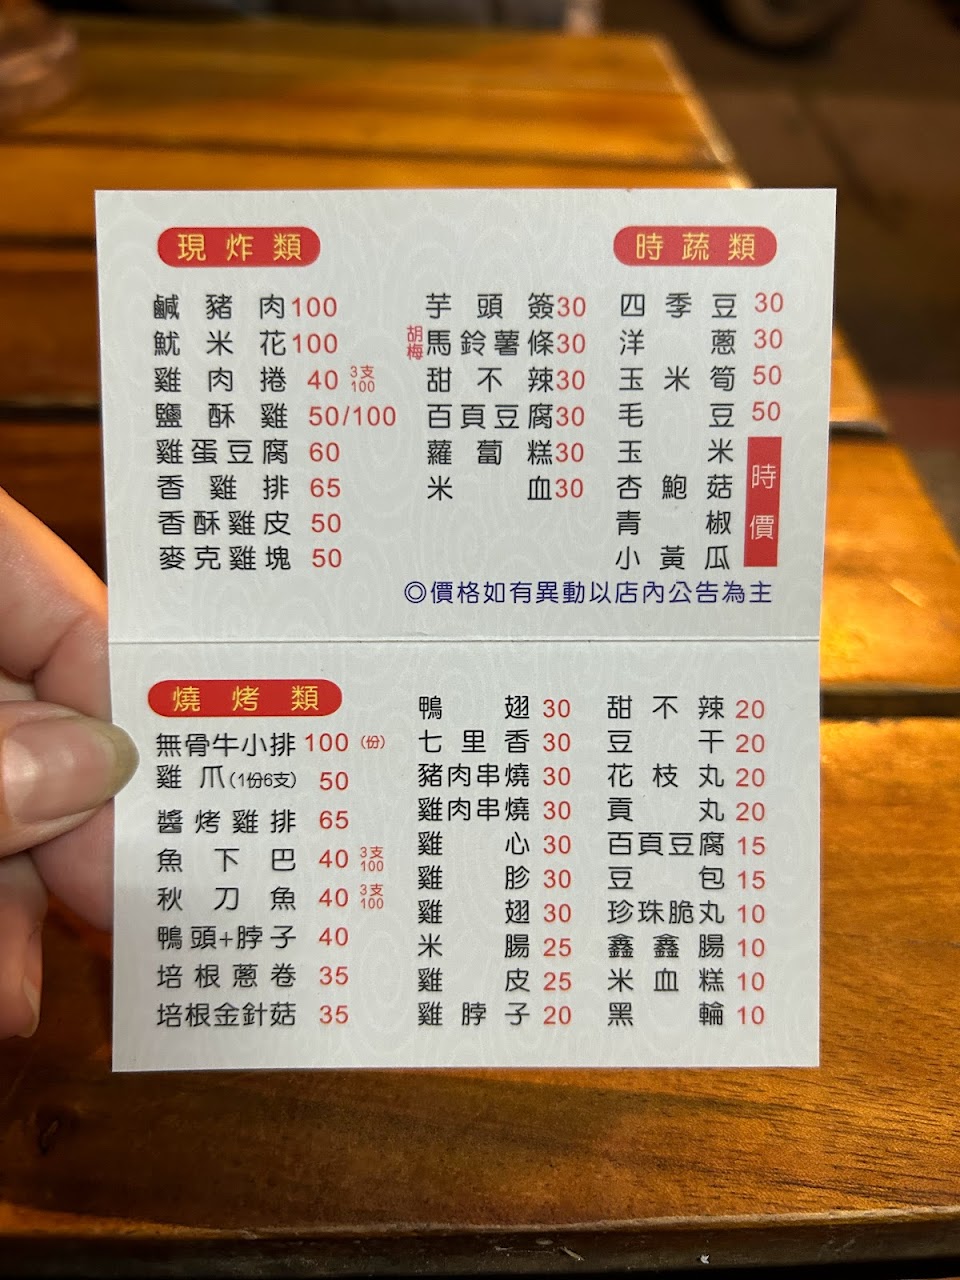 現炸類
鹹豬肉100
魷米花100
雞肉捲 40 3支100
鹽酥雞 50/100
雞蛋豆腐 60
香雞排 65
香酥雞皮 50
麥克雞塊 50
芋頭簽30
胡梅 馬鈴薯條30
甜不辣30
百頁豆腐30
蘿蔔糕30
米血30
時蔬類
四季豆 30
洋蔥 30
玉米筍 50
毛豆 50
玉米
杏鮑菇
青椒
小黃瓜
時價
◎價格如有異動以店內公告為主
燒烤類
無骨牛小排 100(份)
雞爪(1份6支) 50
醬烤雞排 65
魚下巴 40 3支100
秋刀魚 40 3支100
鴨頭+脖子 40
培根蔥卷 35
培根金針菇 35
鴨翅 30
七里香 30
豬肉串燒 30
雞肉串燒 30
雞心 30
雞胗 30
雞翅 30
米腸 25
雞皮 25
雞脖子 20
甜不辣 20
豆干 20
花枝丸 20
貢丸 20
百頁豆腐 15
豆包 15
珍珠脆丸 10
鑫鑫腸 10
米血糕 10
黑輪 10